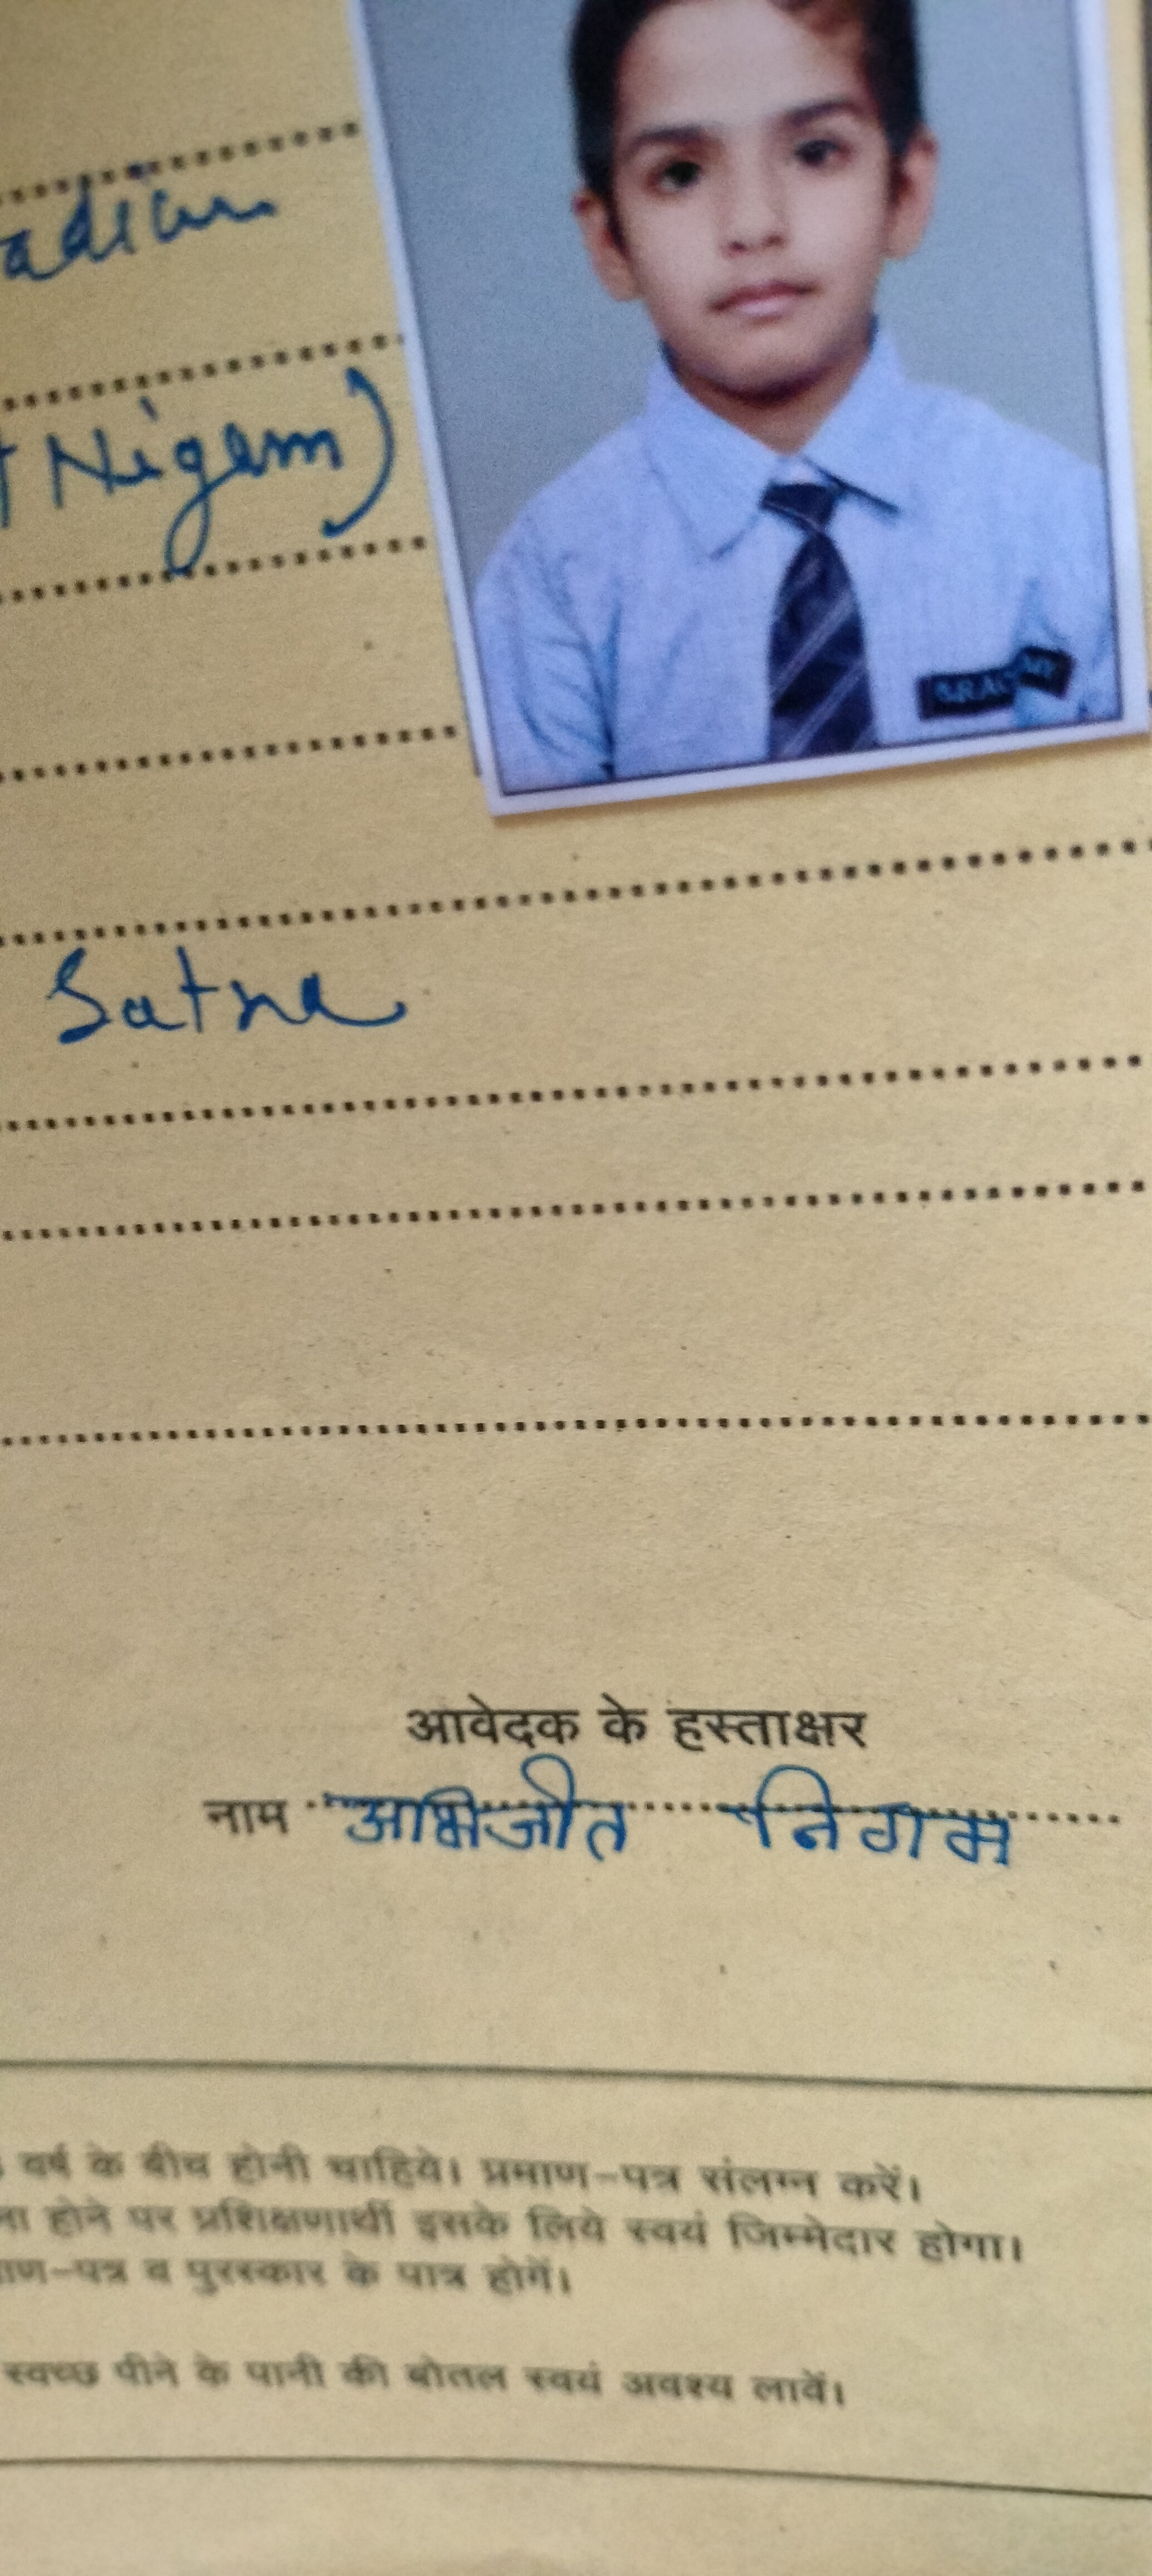 Nigam)
Satna
आवेदक के हस्ताक्षर
नाम अभिजीत निगम
वर्ष के बीच होनी चाहिये। प्रमाण-पत्र संलग्न करें।
होने पर प्रशिक्षणार्थी इसके लिये स्वयं जिम्मेदार होगा।
व पुरस्कार के पात्र होगें।
स्वच्छ पीने के पानी की बोतल स्वयं अवश्य लावें।